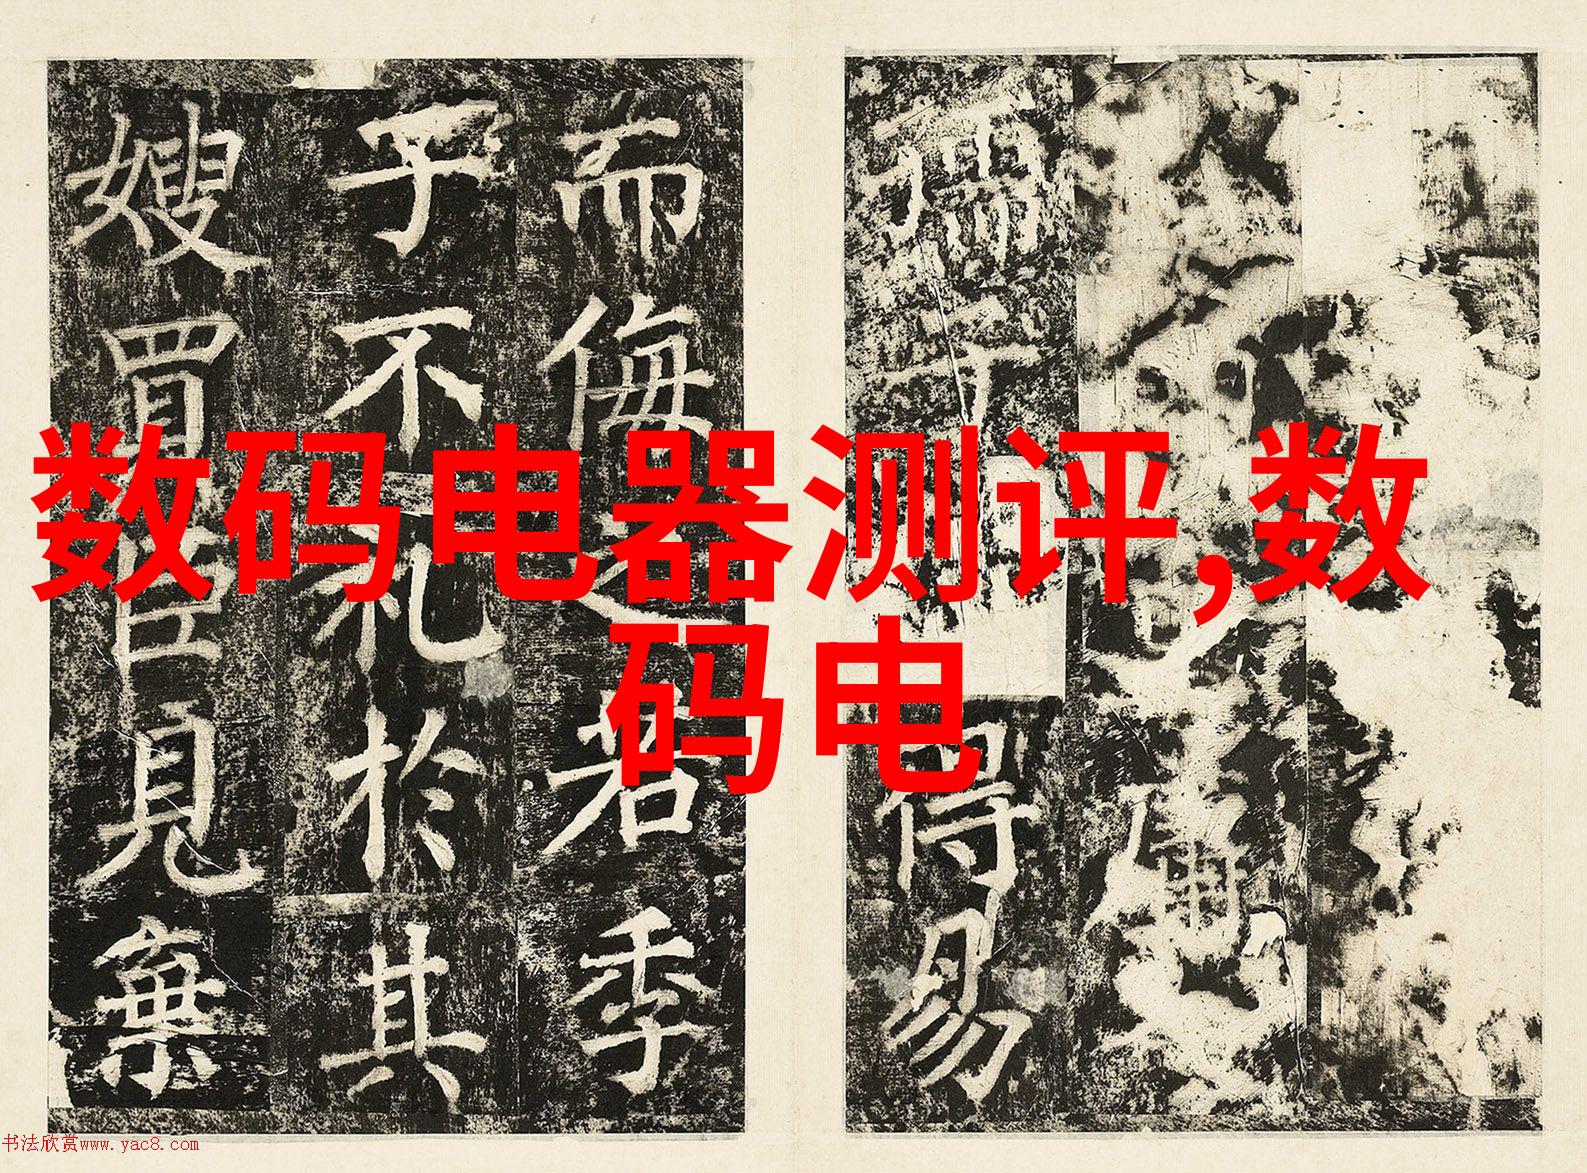 得易
而侮若季
子不礼於其
嫂買臣見棄
数码电器测评,数
码电
书法欣赏www.yac8.com